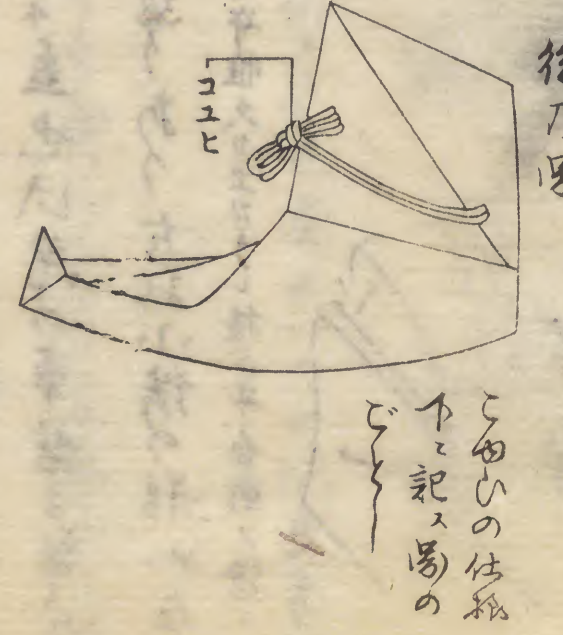 後乃図
コユヒ
こゆひの仕様
下ニ記ス圖の
ごとし